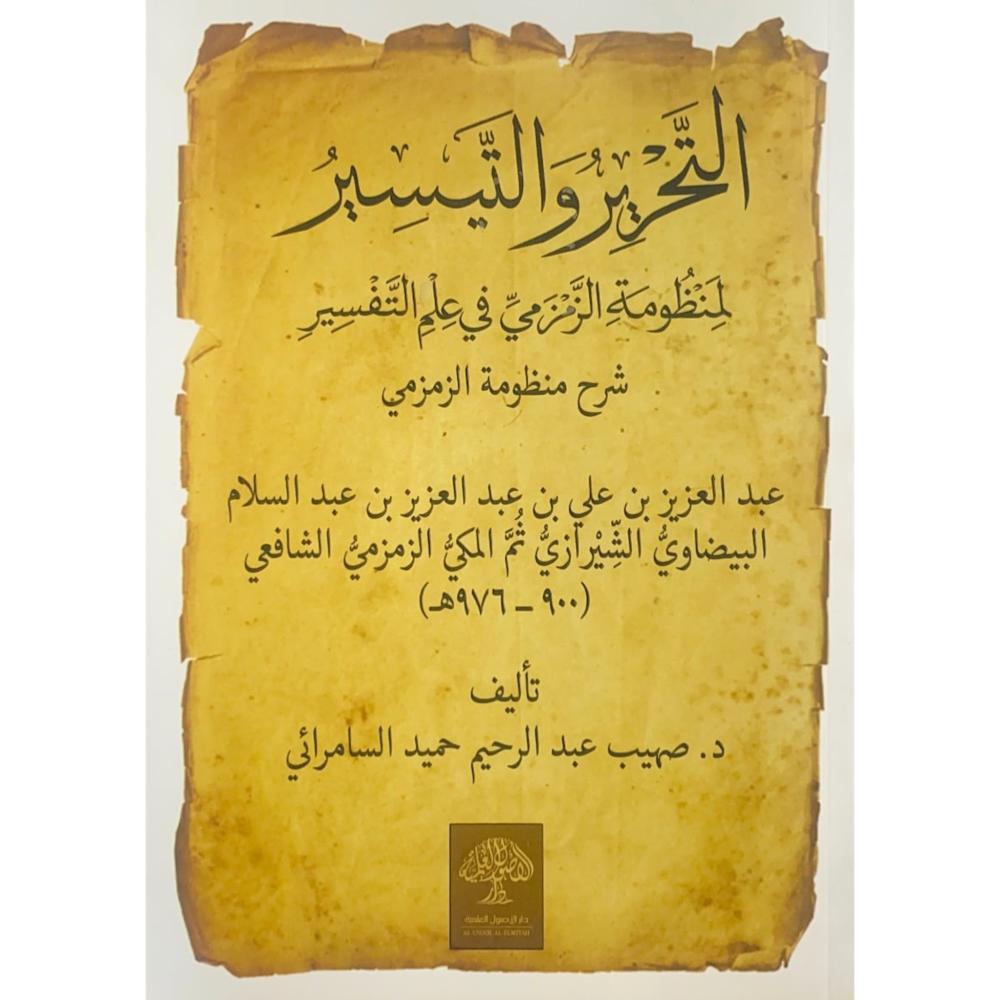 التَّحْرِيرُ وَالتَّيْسِيرُ
لِمَنْظُومَةِ الزَّمْزَمِيِّ فِي عِلْمِ التَّفْسِيرِ
شرح منظومة الزمزمي
عبد العزيز بن علي بن عبد العزيز بن عبد السلام
البيضاويُّ الشِّيْرازيُّ ثُمَّ المكيُّ الزمزميُّ الشافعي
(٩٠٠ – ٩٧٦هـ)
تأليف
د. صهيب عبد الرحيم حميد السامرائي
الأصول العلمية
دار
دار الأصول العلمية